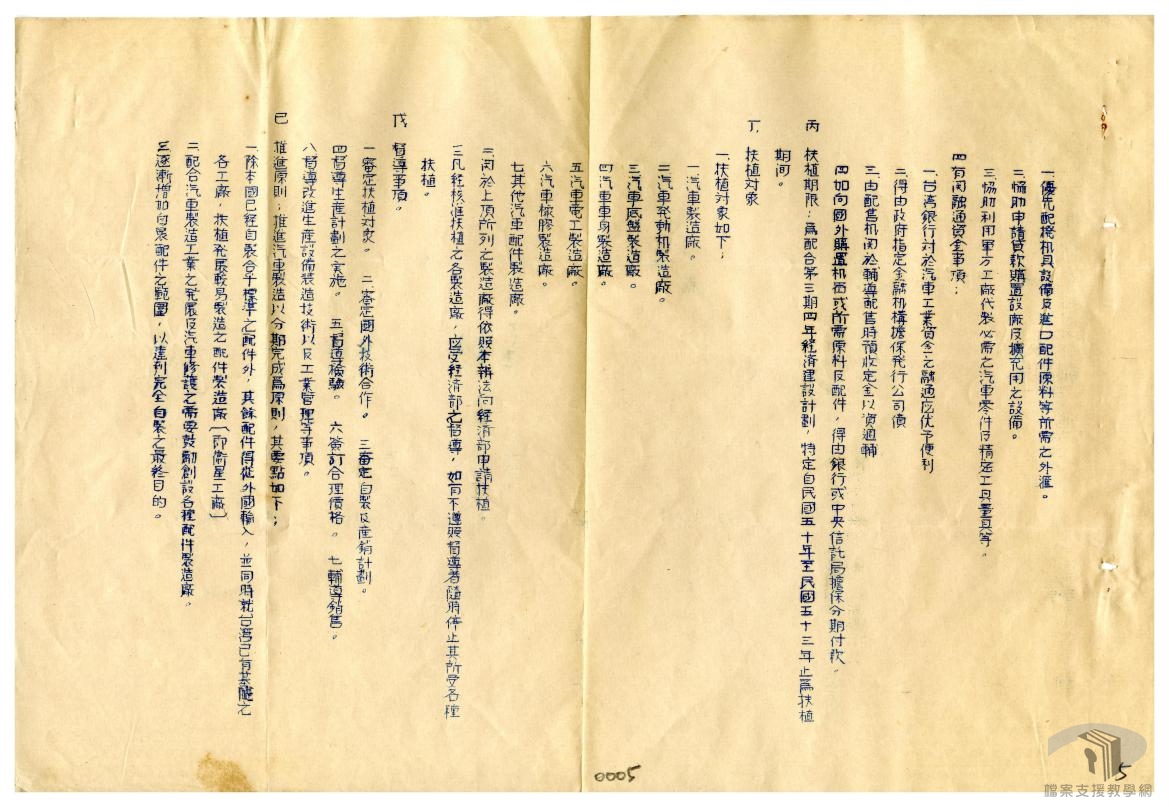 一優先配撥机具設備及進口配件原料等所需之外滙。
二協助申請貸款購置設廠及擴充用之設備。
三協助利用軍方工廠代製必需之汽車零件及精密工具量具等。
四有関融通資金事項：
一台湾銀行对於汽車工業資金之融通应优予便利
二得由政府指定金融机構擔保発行公司債
三由配售机関於輔導配售時預收定金以資週轉
四如向國外購置机器或所需原料及配件，得由銀行或中央信託局擔保分期付款。
丙 扶植期限：爲配合第三期四年経済建設計劃，特定自民國五十年至民國五十三年止爲扶植
期间。
丁、扶植对象
一扶植对象如下：
一汽車製造廠。
二汽車発動机製造廠。
三汽車底盤製造廠。
四汽車車身製造廠。
五汽車電工製造廠。
六汽車橡膠製造廠。
七其他汽車配件製造廠。
二関於上項所列之製造廠得依照本辦法向経済部申請扶植。
三凡経核准扶植之各製造廠，应受経済部之督導，如有不遵照督導者隨時停止其所受各種
扶植。
戊 督導事項。
一審定扶植对象。 二審定國外技術合作。 三審定自製及產銷計劃。
四督導生產計劃之实施。 五督導檢驗。 六簽訂合理價格。 七輔導銷售。
八督導改進生產設備製造技術以及工業管理等事項。
己 推進原則：推進汽車製造以分期完成爲原則，其要點如下：
一除本國已経自製合乎標準之配件外，其餘配件得從外國輸入，並同時就台湾已有基礎之
各工廠，扶植発展較易製造之配件製造廠（即衛星工廠）
二配合汽車製造工業之発展及汽車修護之需要鼓勵創設各種配件製造廠。
三逐漸增加自製配件之範圍，以達到完全自製之最終目的。
0005
5
檔案支援教學網